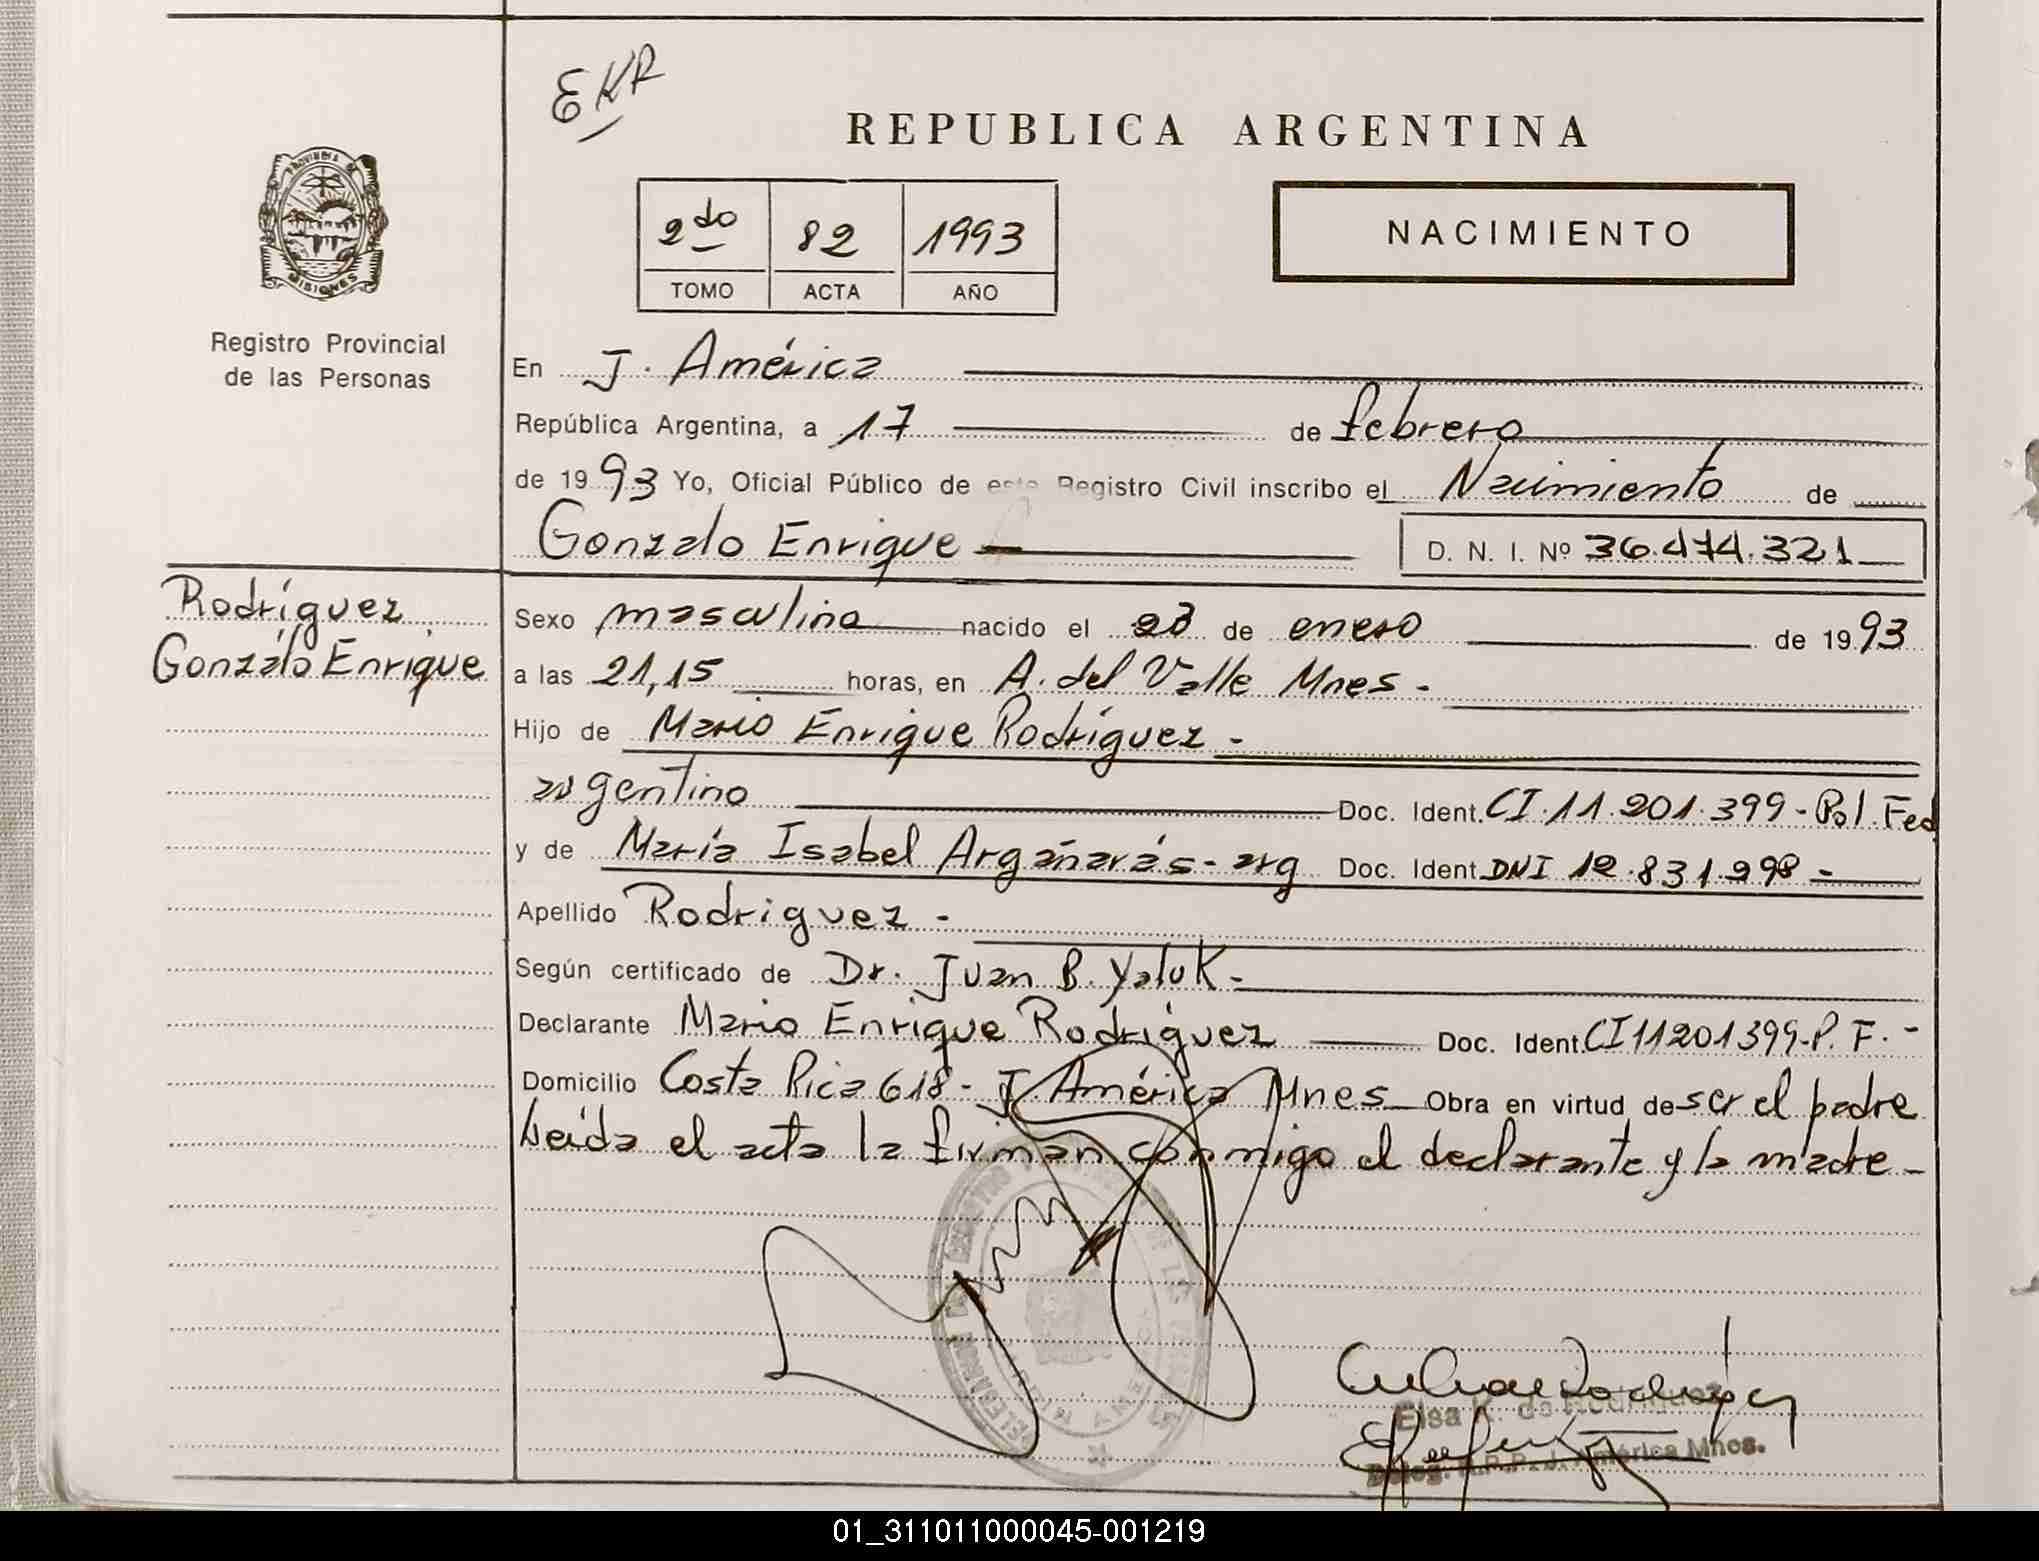 EKR
REPUBLICA ARGENTINA
PROVINCIA DE
MISIONES
2do 82 1993
TOMO ACTA AÑO
NACIMIENTO
Registro Provincial
de las Personas
En J. América
República Argentina, a 17 de febrero
de 1993 Yo, Oficial Público de este Registro Civil inscribo el Nacimiento de
Gonzalo Enrique D. N. I. Nº 36.474.321
Rodríguez
Gonzalo Enrique
Sexo masculino nacido el 23 de enero de 1993
a las 21,15 horas, en A. del Valle Mnes -
Hijo de Mario Enrique Rodríguez -
argentino Doc. Ident. CI.11.201.399 - Pol. Fed
y de María Isabel Argañarás - arg Doc. Ident DNI 12.831.998 -
Apellido Rodríguez -
Según certificado de Dr. Juan B. Yaluk -
Declarante Mario Enrique Rodríguez Doc. Ident. CI 11201399-P. F. -
Domicilio Costa Rica 618 - J. América Mnes Obra en virtud de ser el padre
Leida el acta la firman conmigo el declarante y la madre -
Elsa K. de Rodriguez
Deleg. R.P.P. J. América Mnes.
01_311011000045-001219